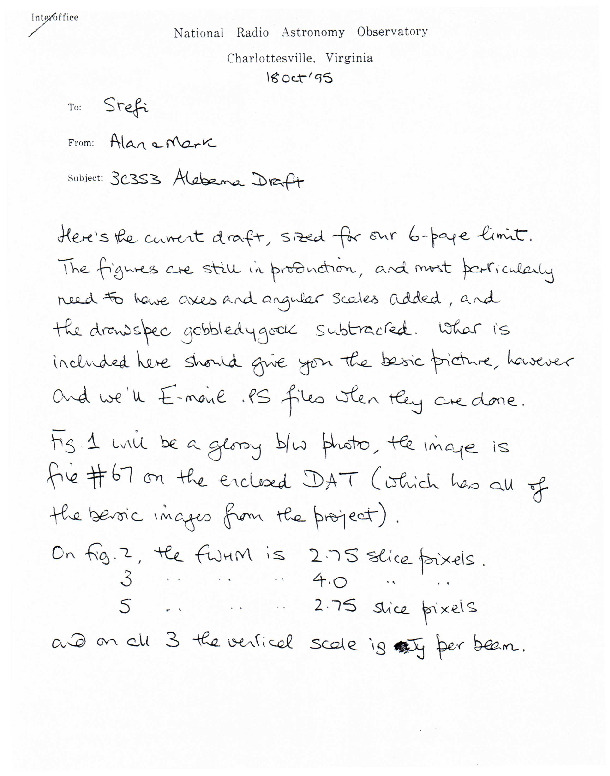 Interoffice
National Radio Astronomy Observatory
Charlottesville, Virginia
18 Oct '95
To: Stefi
From: Alan & Mark
Subject: 3C353 Alabama Draft
Here's the current draft, sized for our 6-page limit.
The figures are still in production, and most particularly
need to have axes and angular scales added, and
the drawspec gobbledygook subtracted. What is
included here should give you the basic picture, however
and we'll E-mail .PS files when they are done.
Fig 1 will be a glossy b/w photo, the image is
file #67 on the enclosed DAT (which has all of
the basic images from the project).
On fig. 2, the FWHM is 2.75 slice pixels.
3 " " " 4.0 " "
5 " " " 2.75 slice pixels
and on all 3 the vertical scale is Jy per beam.